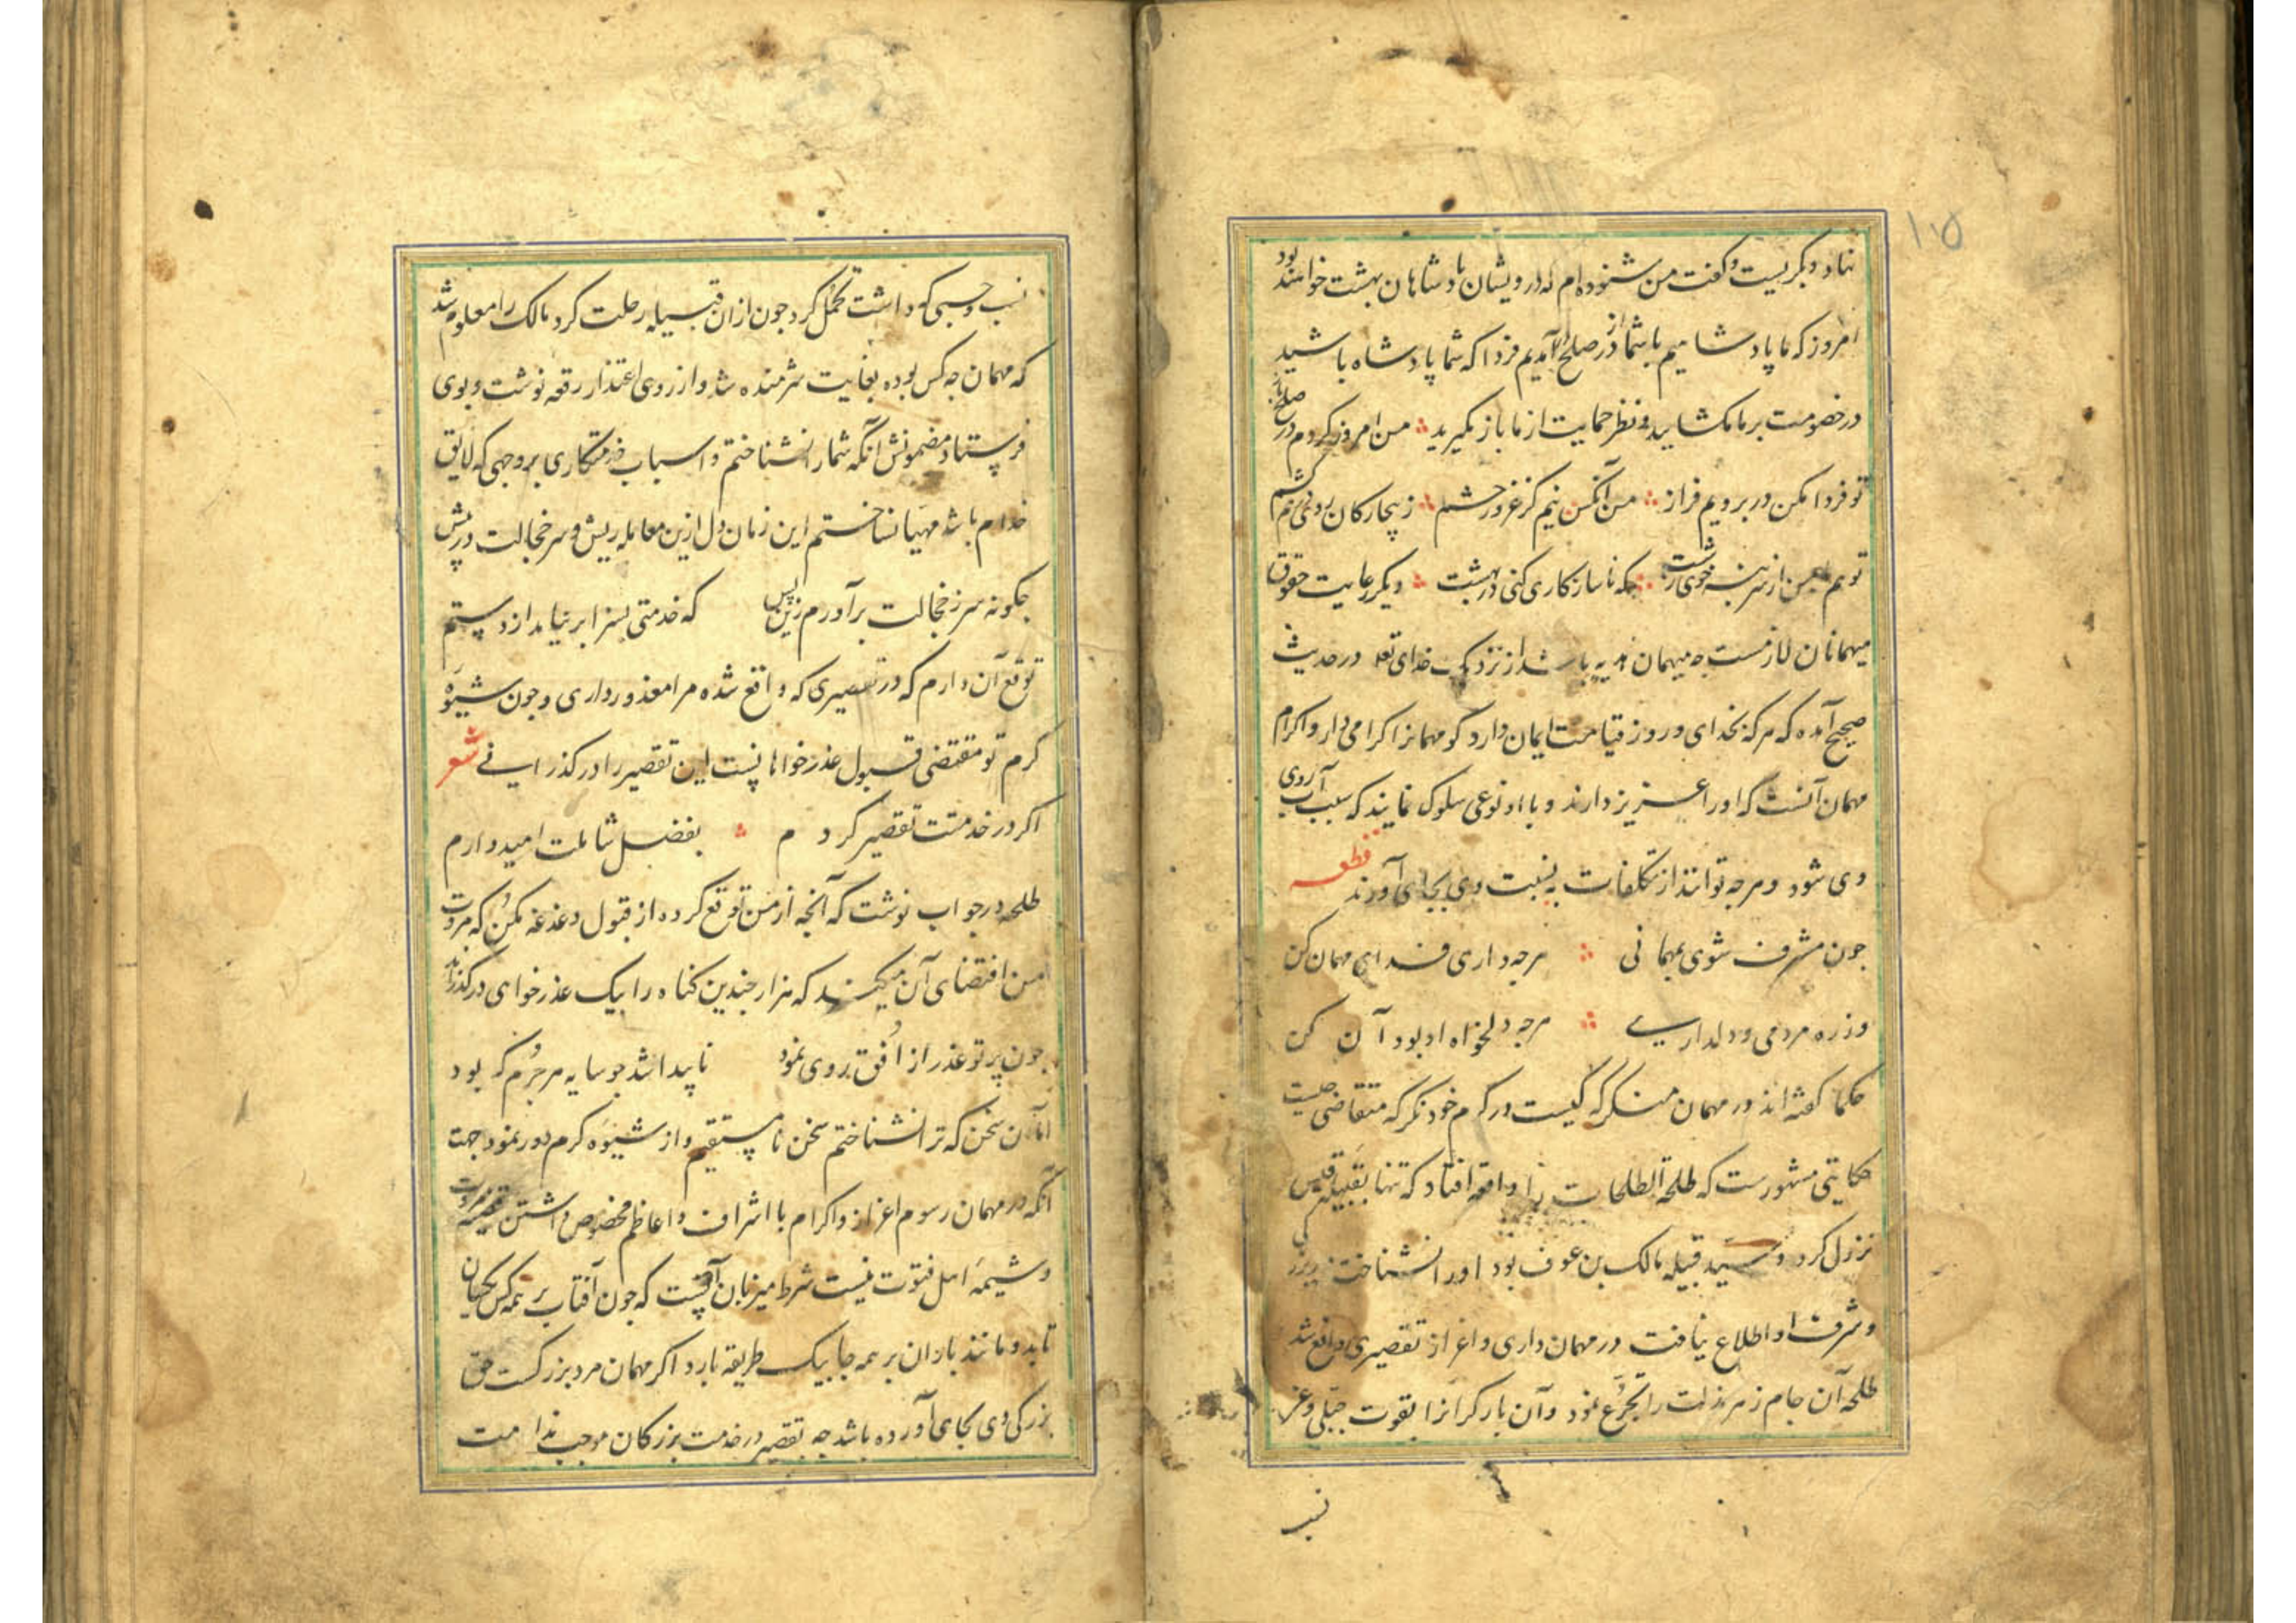 ۱۵
نهاد و بگریست و گفت من شنوده‌ام که درویشان پادشاهان بهشت خواهند بود
امروز که ما پادشاهیم با شما از در صلح درآمدیم فردا که شما پادشاه باشید
در خصومت بر ما مکشایید و نظر حمایت از ما باز مگیرید من امروز کردم در صلح باز
تو فردا مکن در برویم فراز من آنکس نیم کز غرور حشم ز بیچارکان روی درهم کشم
تو هم با من از سر بنه خوی زشت که ناسازکاری کنی در بهشت دیگر رعایت حقوق
میهمانان لازمست چه میهمان هدیه باشد از نزدیک خدای تعه در حدیث
صحیح آمده که هرکه بخدای و روز قیامت ایمان دارد گو مهمانرا کرامی دار و اکرام
مهمان آنست که او را عزیز دارند و با او نوعی سلوک نمایند که سبب آب روی
وی شود و هرجه توانند از تکلفات به نسبت وی بجای آورند قطعه
جون مشرف شوی بمهمانی هرجه داری فدای مهمان کن
وز ره مردمی و دلداری هرجه دلخواه او بود آن کن
حکما کفته‌اند در مهمان منکر که کیست در کرم خود نکر که متقاضی جیست
حکایتی مشهورست که طلحة الطلحات را واقعه افتاد که تنها بقبیله قیس
نزول کرد و سید قبیله مالک بن عوف بود او را نشناخت و بر بزرکی
و شرف او اطلاع نیافت در مهمان‌داری و اعزاز تقصیری واقع شد
طلحه آن جام زهر مذلت را تجرع نمود و آن بار کرانرا بقوت جبلی و عز
نسب
نسب و حسبی که داشت تحمل کرد جون ازان قبیله رحلت کرد مالک را معلوم شد
که مهمان جه کس بوده بغایت شرمنده شد و از روی اعتذار رقعه نوشت و بوی
فرستاد مضمونش آنکه شما را نشناختم و اسباب خدمتکاری بر وجهی که لایق
خدام باشد مهیا نساختم این زمان دل ازین معامله ریش و سر خجالت در پیش
جکونه سر ز خجالت برآورم زین پس که خدمتی بسزا بر نیامد از دستم
توقع آن دارم که در تقصیری که واقع شده مرا معذور داری و جون شیوه
کرم تو مقتضی قبول عذرخواهانست این تقصیر را درکذرانی شعر
اکر در خدمتت تقصیر کردم بفضل شاملت امیدوارم
طلحه در جواب نوشت که آنچه از من توقع کرده از قبول دغدغه مکن که مروت
من اقتضای آن میکند که هزار جندین کناه را بیک عذرخواهی درکذراند
جون پرتو عذر از افق روی نمود ناپیدا شد جو سایه هر جرم که بود
اما آن سخن که ترا نشناختم سخن نامستقیم و از شیوه کرم دور نمود جهت
آنکه در مهمان رسوم اعزاز و اکرام با اشراف و اعاظم مخصوص داشتن قضیه مروت
و شیمه اهل فتوت نیست شرط میزبان آنست که جون آفتاب بر همه کس یکسان
تابد و مانند باران بر همه جا بیک طریقه بارد اکر مهمان مرد بزرکست حق
بزرکی وی بجای آورده باشد چه تقصیر در خدمت بزرکان موجب ندامت